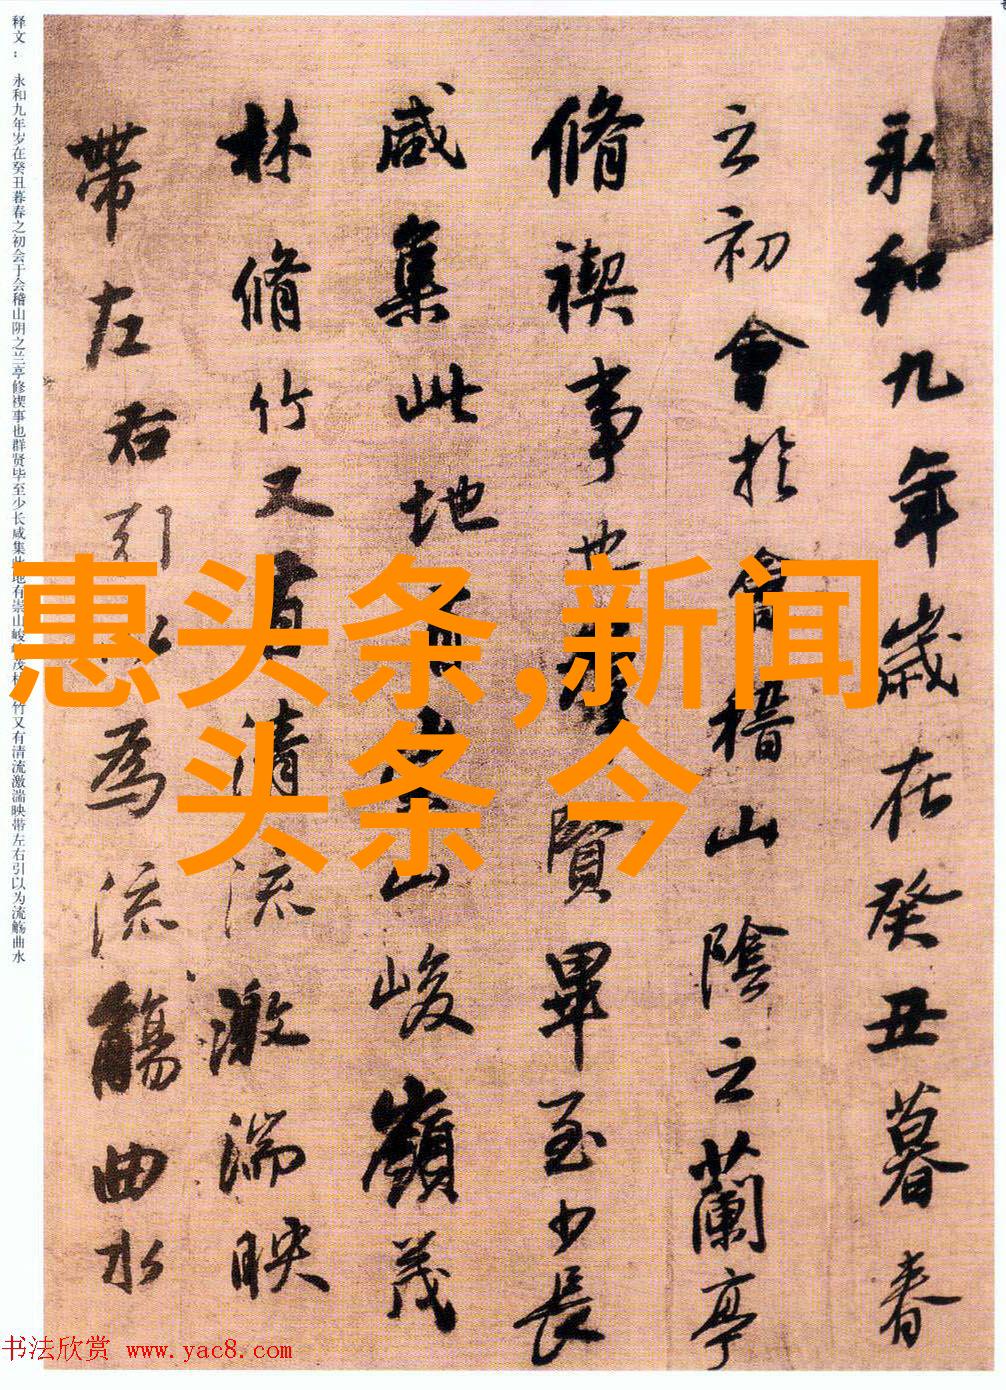 永和九年歲在癸丑暮春
之初會於會稽山陰之蘭亭
脩禊事也羣賢畢至少長
咸集此地有崇山峻嶺茂
林脩竹又有清流激湍映
帶左右引以為流觴曲水
释文： 永和九年岁在癸丑暮春之初会于会稽山阴之兰亭修禊事也群贤毕至少长咸集此地有崇山峻岭茂林修竹又有清流激湍映带左右引以为流觞曲水
惠头条,新闻
头条 今
书法欣赏 www.yac8.com